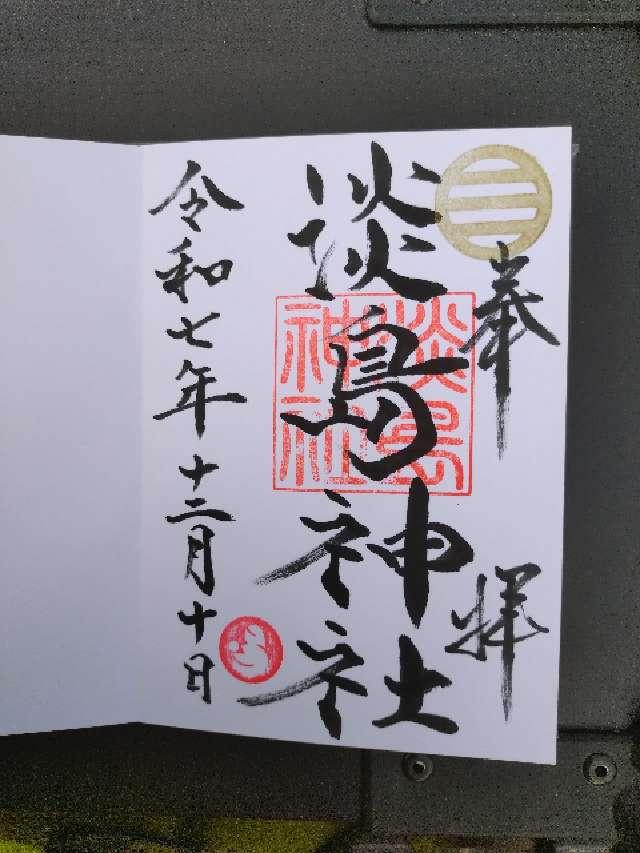 奉拝
淡島神社
淡島神社
令和七年十二月十日